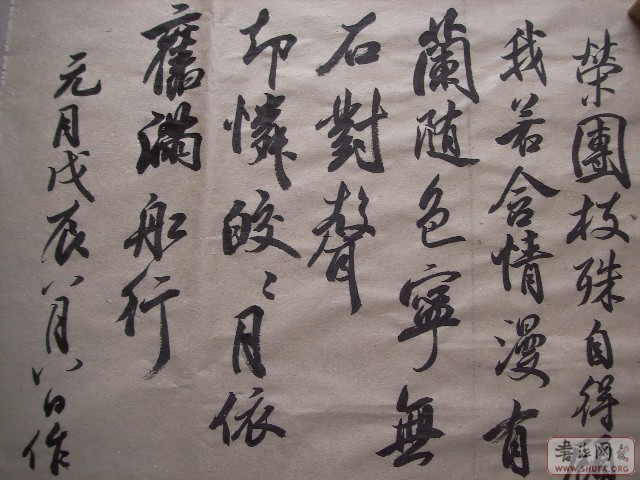 榮團枝殊自得
我若含情漫有
蘭随色寧無
石對聲
却憐皎〻月依
舊滿船行
元月戊辰八月八日作
WWW.SHUFA.ORG